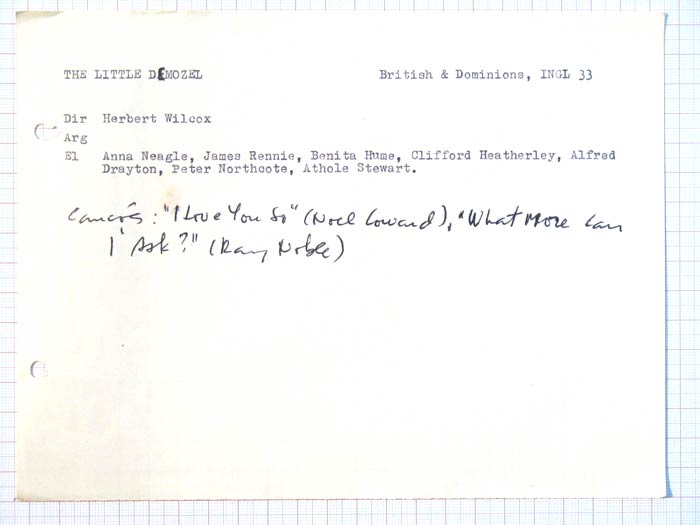 THE LITTLE DEMOZEL British & Dominions, INGL 33
Dir Herbert Wilcox
Arg
El Anna Neagle, James Rennie, Benita Hume, Clifford Heatherley, Alfred
Drayton, Peter Northcote, Athole Stewart.
"I Love You So" (Noel Coward), "What More Can
I Ask?" (Ray Noble)